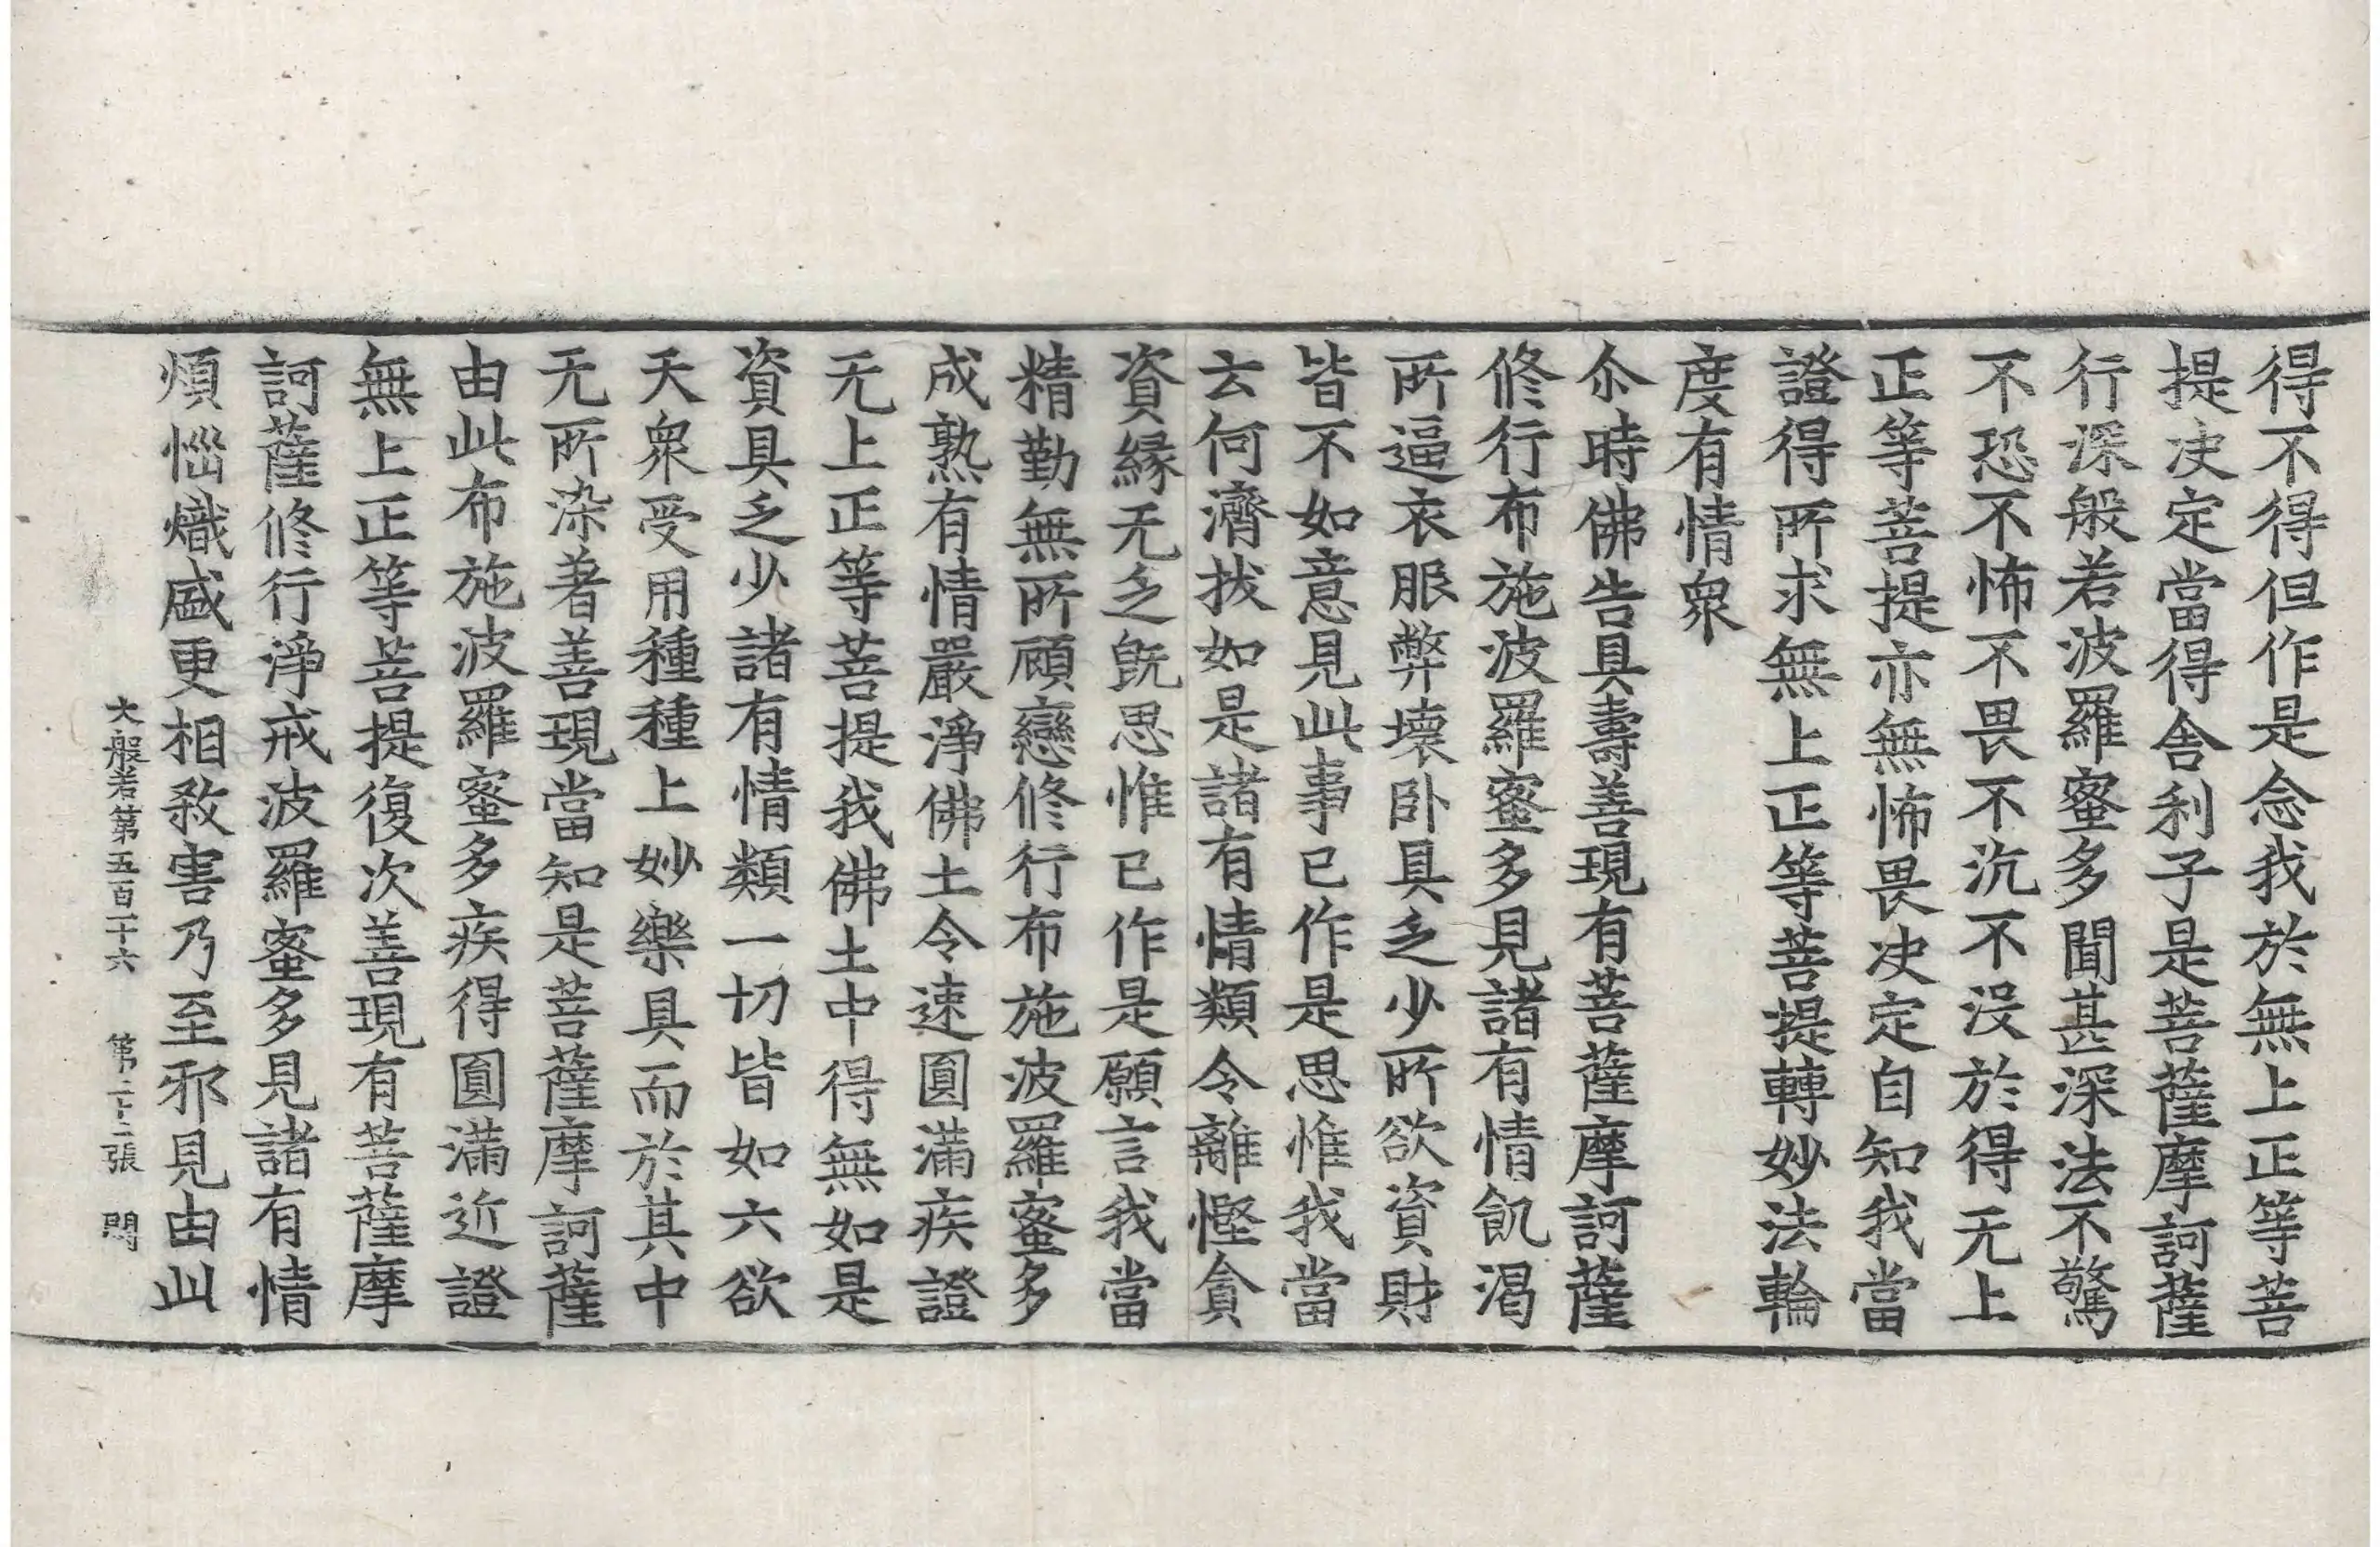 得不得但作是念我於無上正等菩
提决定當得舍利子是菩薩摩訶薩
行深般若波羅蜜多聞甚深法不驚
不恐不怖不畏不沉不没於得无上
正等菩提亦無怖畏决定自知我當
證得所求無上正等菩提轉妙法輪
度有情衆
尒時佛告具壽善現有菩薩摩訶薩
修行布施波羅蜜多見諸有情飢渴
所逼衣服弊壞卧具乏少所欲資財
皆不如意見此事已作是思惟我當
云何濟拔如是諸有情類令離慳貪
資縁无乏旣思惟已作是願言我當
精勤無所顧戀修行布施波羅蜜多
成熟有情嚴淨佛土令速圓滿疾證
无上正等菩提我佛土中得無如是
資具乏少諸有情類一切皆如六欲
天衆受用種種上妙樂具而於其中
无所染著善現當知是菩薩摩訶薩
由此布施波羅蜜多疾得圓滿近證
無上正等菩提復次善現有菩薩摩
訶薩修行淨戒波羅蜜多見諸有情
煩惱熾盛更相敎害乃至邪見由此
大般若第五百十六 第二十二張 問